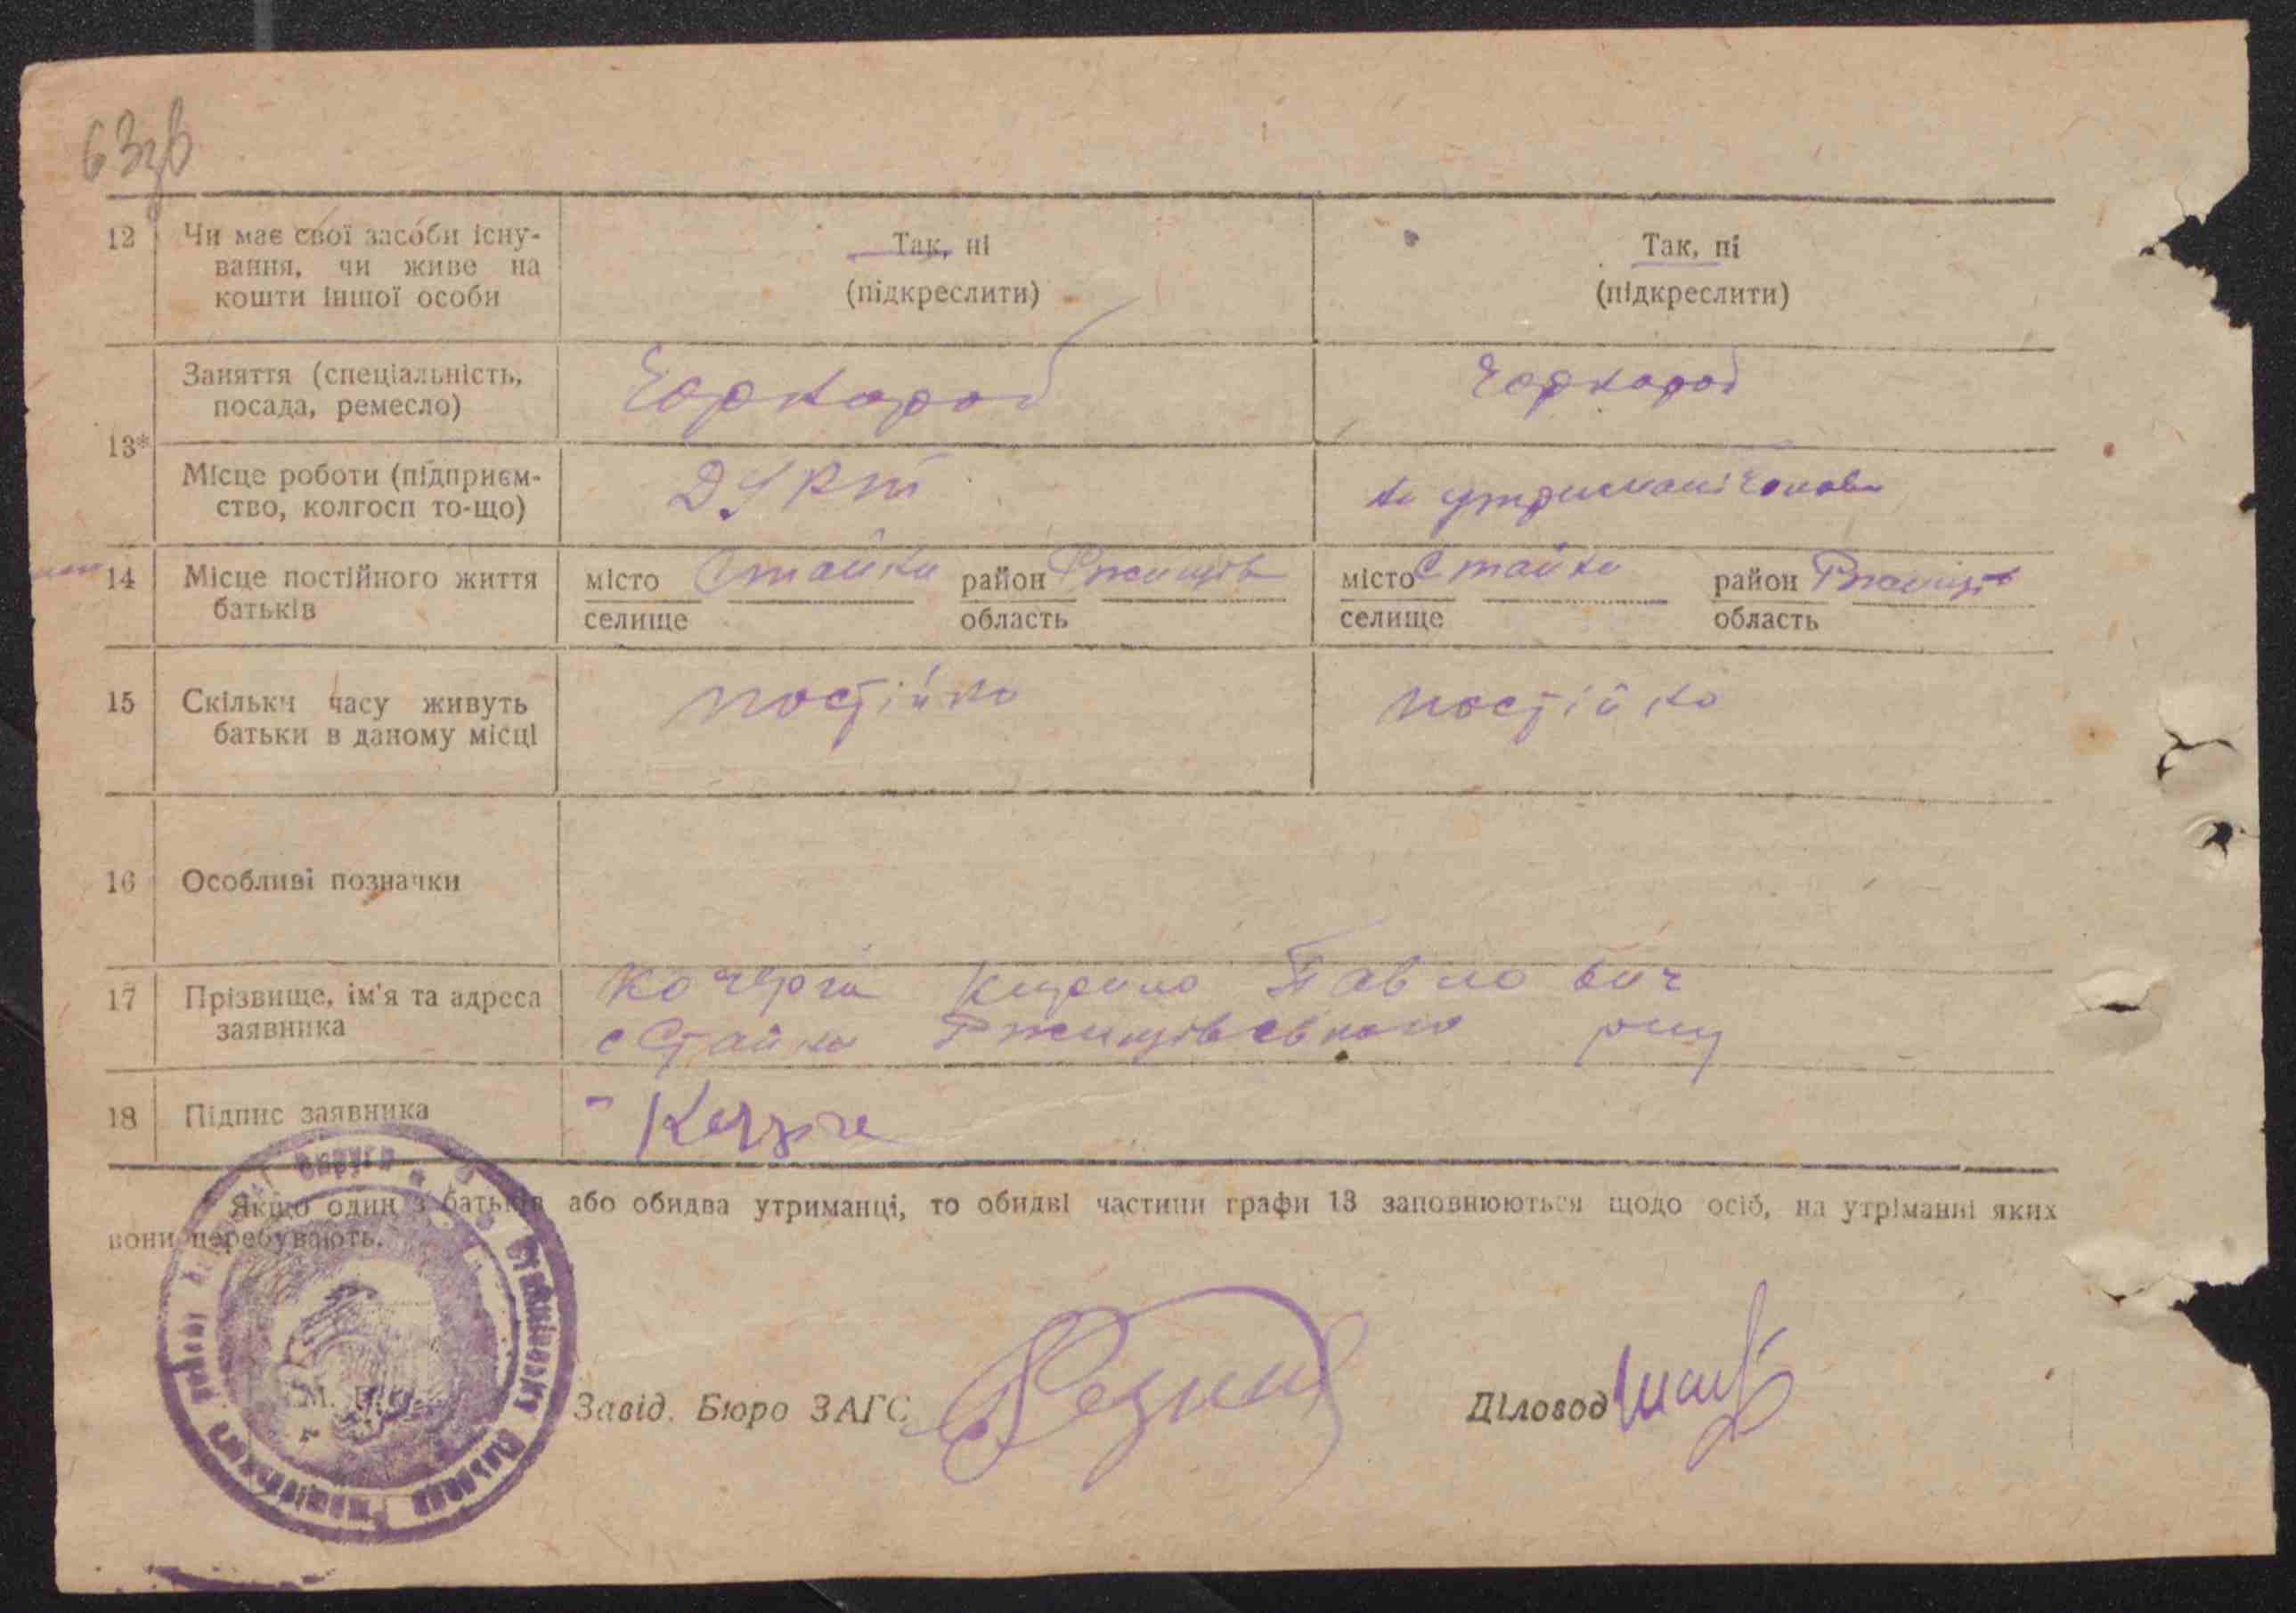 63зв
12 Чи має свої засоби існу-
вання, чи живе на
кошти іншої особи
Так, ні
(підкреслити)
Так, ні
(підкреслити)
13*
Заняття (спеціальність,
посада, ремесло)
Чорнороб
Чорнороб
Місце роботи (підприєм-
ство, колгосп то-що)
на утриманні чолов
14 Місце постійного життя
батьків
місто Стайки район Ржищів
селище область
місто Стайки район Ржищів
селище область
15 Скільки часу живуть
батьки в даному місці
постійно
постійно
16 Особливі позначки
17 Прізвище, ім'я та адреса
заявника
Кочерга Кирило Павлович
с Стайки Ржищівського р-ну
18 Підпис заявника
Якщо один з батьків або обидва утриманці, то обидві частини графи 13 заповнюються щодо осіб, на утріманні яких
вони перебувають.
М. П.
Завід. Бюро ЗАГС
Діловод